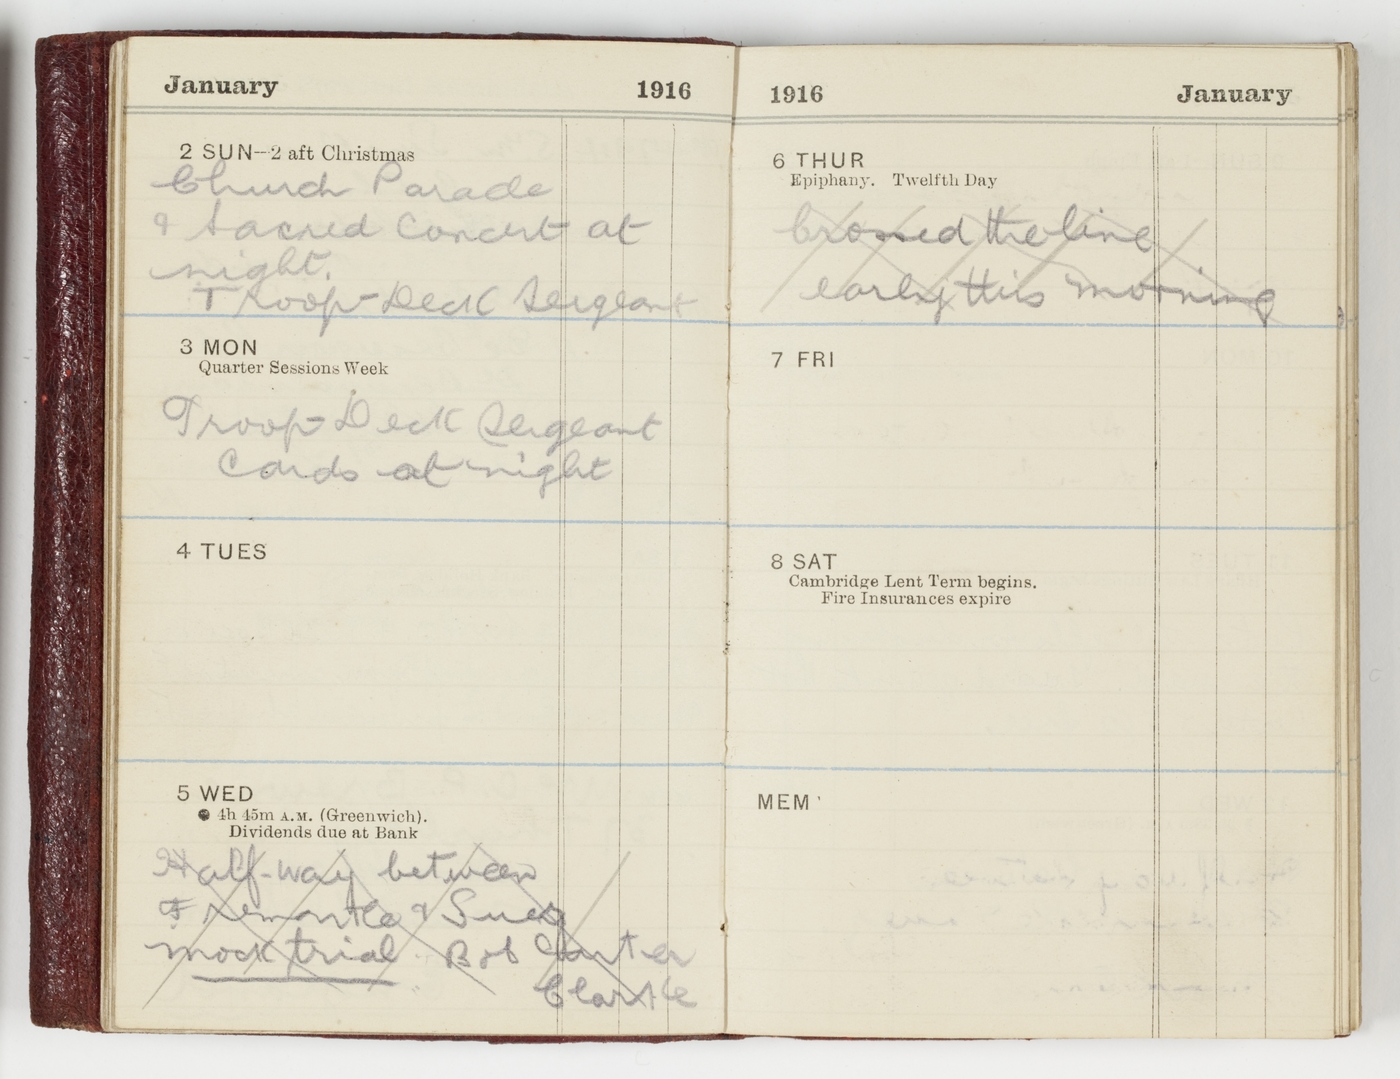 January 1916
2 SUN—2 aft Christmas
Church Parade
& Sacred Concert at
night.
Troop-Deck Sergeant
3 MON
Quarter Sessions Week
Troop-Deck Sergeant
Cards at night
4 TUES
5 WED
● 4h 45m A.M. (Greenwich).
Dividends due at Bank
Half-way between
Fremantle & Suez
mock trial Bob Carter
Clarke
1916 January
6 THUR
Epiphany. Twelfth Day
Crossed the line
early this morning
7 FRI
8 SAT
Cambridge Lent Term begins.
Fire Insurances expire
MEM